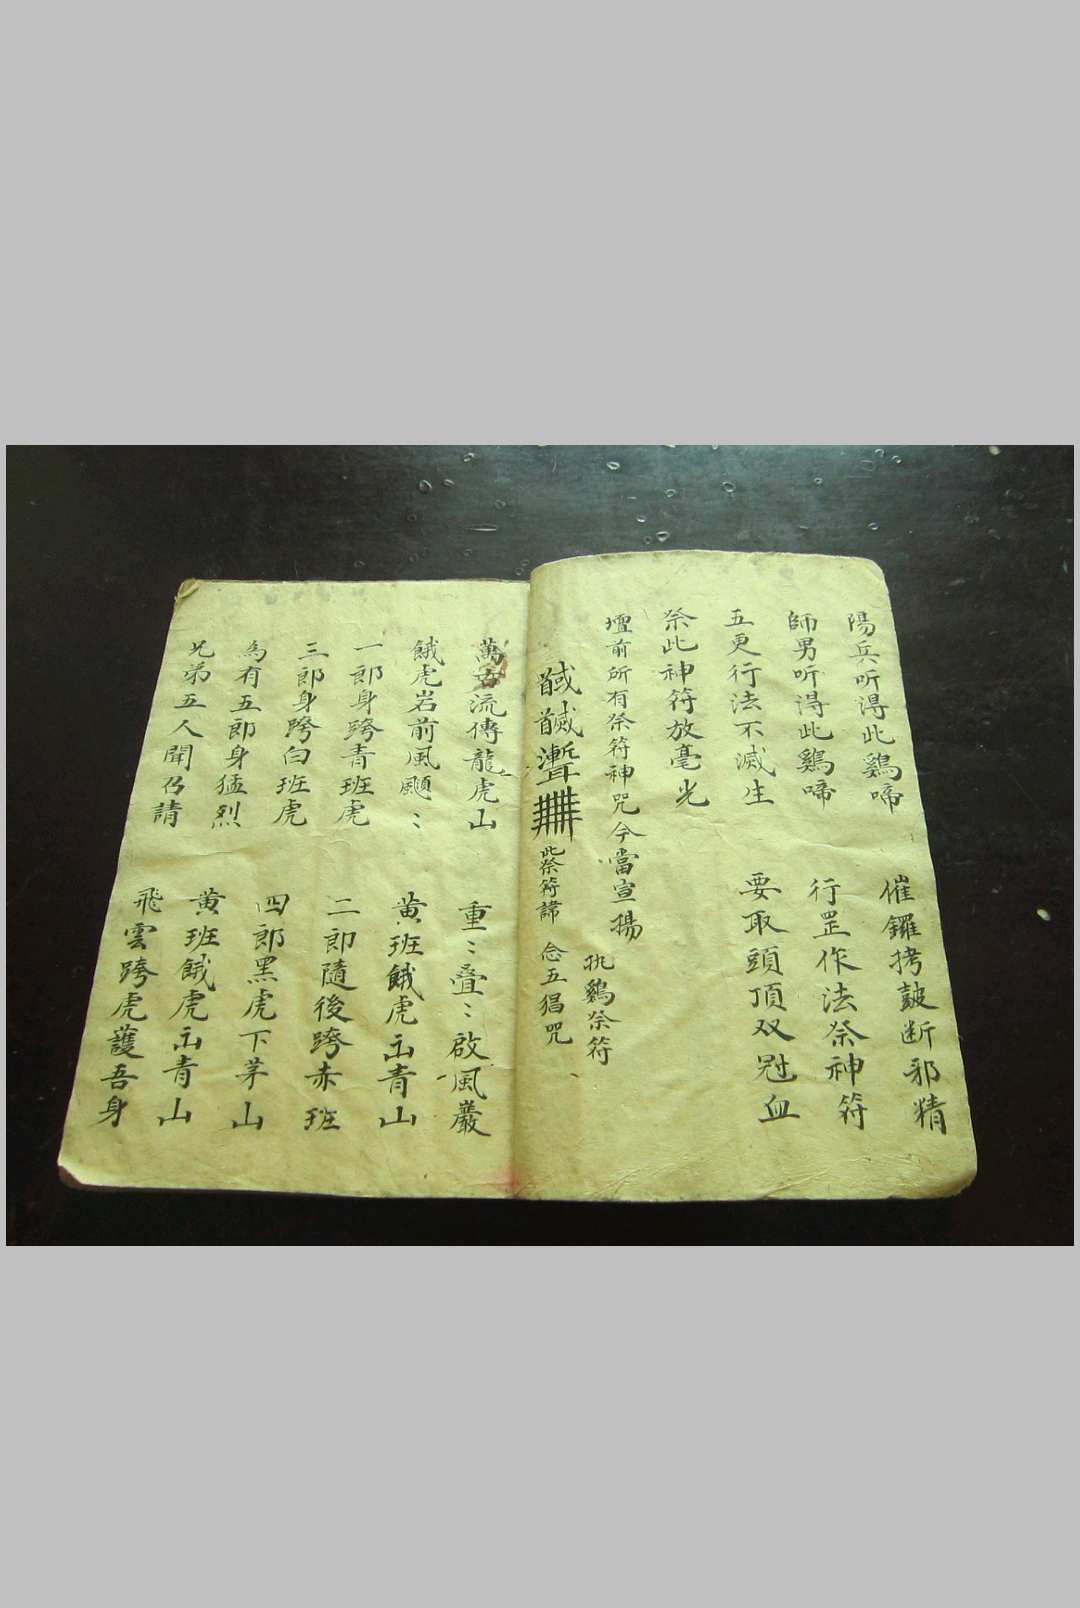 陽兵听淂此鷄啼　催鑼拷皷断邪精
師男听淂此鷄啼　行罡作法祭神符
五更行法不滅生　要取頭頂双冠血
祭此神符放毫光
壇前所有祭符神咒今當宣揚　执鷄祭符
此祭符諱　念五猖咒
萬古流傳龍虎山　重〻叠〻啟風巖
餓虎岩前風颺〻　黄班餓虎出青山
一郎身跨青班虎　二郎隨後跨赤班
三郎身跨白班虎　四郎黑虎下茅山
為有五郎身猛烈　黄班餓虎出青山
兄弟五人聞召請　飛雲跨虎護吾身